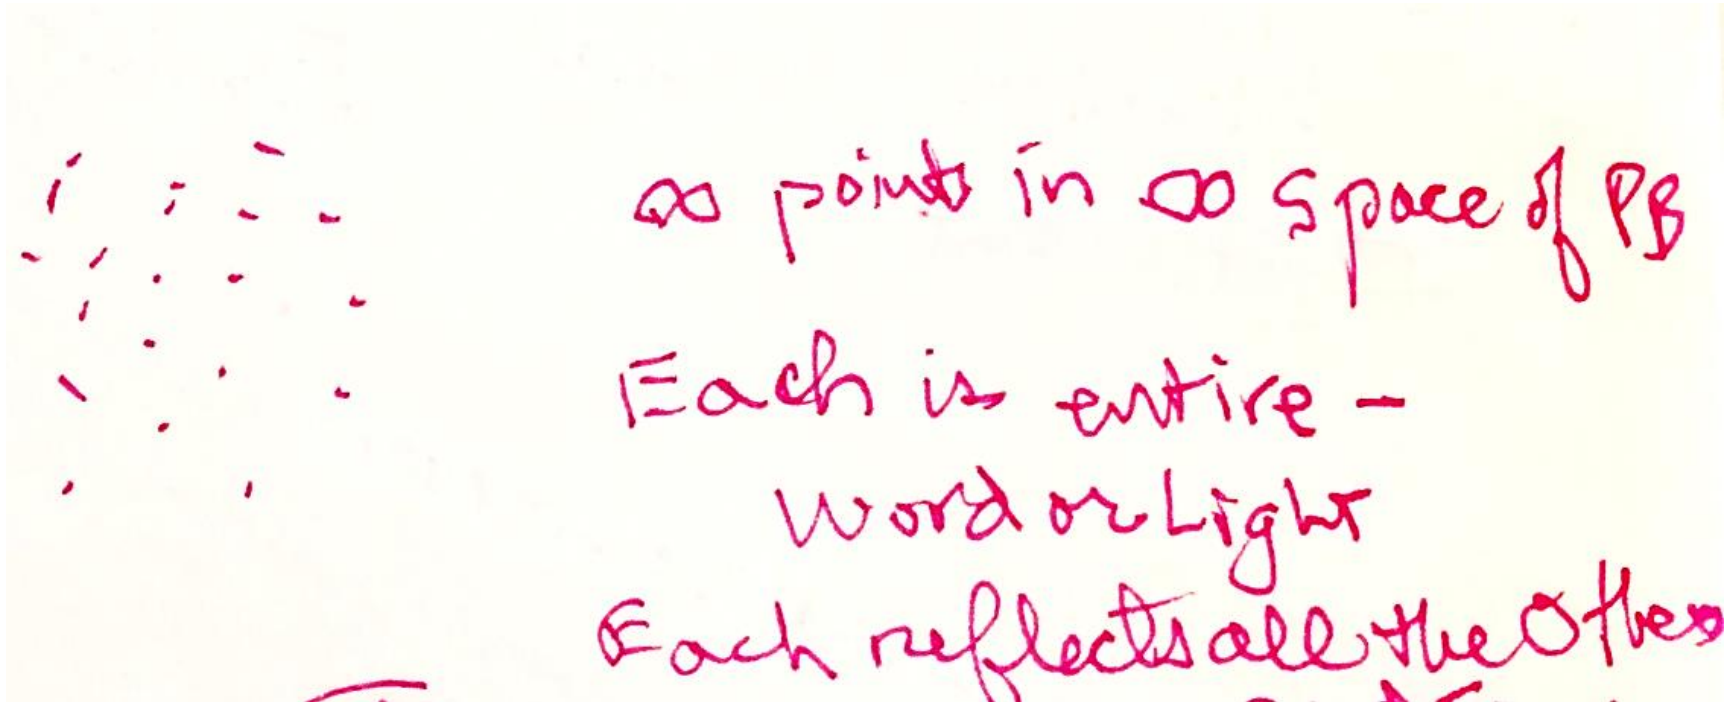 ∞ points in ∞ space of PB
Each is entire –
Word or Light
Each reflects all the Others